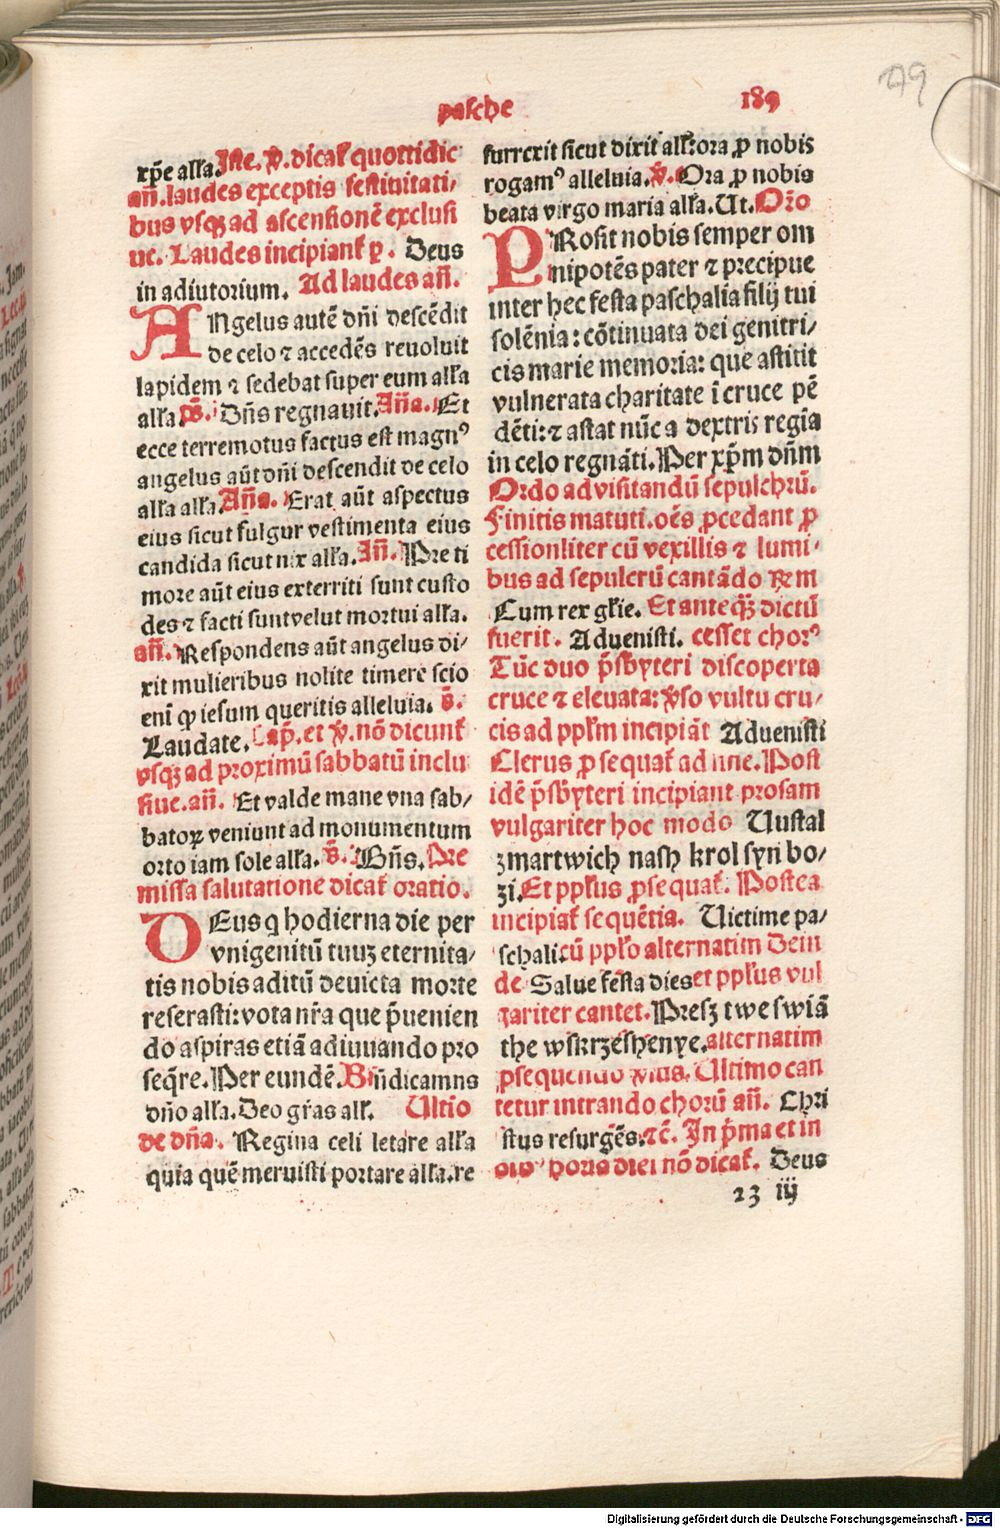 pasche
189
79
xp̄e alła. Iste. ꝟ. dicat̄ quottidie
añ. laudes exceptis festiuitati/
bus vsqꝫ ad ascensionē exclusi
ue. Laudes incipiant̄ ꝑ. Deus
in adiutorium. Ad laudes añ.
ANgelus autē dn̄i descēdit
de celo ⁊ accedēs reuoluit
lapidem ⁊ sedebat super eum alła
alła. ps̄. Dn̄s regnauit. Aña. Et
ecce terremotus factus est magnꝰ
angelus aūt dn̄i descendit de celo
alła alła. Añа. Erat aūt aspectus
eius sicut fulgur vestimenta eius
candida sicut nix alła. Añ. Pre ti
more aūt eius exterriti sunt custo
des ⁊ facti sunt velut mortui alła.
añ. Respondens aūt angelus di/
xit mulieribus nolite timere scio
eni ꝙ iesum queritis alleluia. ps̄.
Laudate. Cap̄. et ꝟ. nō dicunt̄
vsqꝫ ad proximū sabbatū inclu
siue. añ. Et valde mane vna sab/
batoꝝ veniunt ad monumentum
orto iam sole alła. ps̄. Bn̄s. Pre
missa salutatione dicat̄ oratio.
DEus q hodierna die per
vnigenitū tuuꝫ eternita/
tis nobis aditū deuicta morte
reserasti: vota nr̄a que p̄uenien
do aspiras etiā adiuuando pro
seqr̄e. Per eundē. Bn̄dicamns
dn̄o alła. Deo gr̄as alł. Ultio
de dn̄a. Regina celi letare alła
quia quē meruisti portare alła. re
surrexit sicut dixit alł: ora ꝓ nobis
rogamꝰ alleluia. ꝟ. Ora ꝓ nobis
beata virgo maria alła. Ut. Or̄o
PRosit nobis semper om
nipotēs pater ⁊ precipue
inter hec festa paschalia filij tui
solēnia: cōtinuata dei genitri/
cis marie memoria: que astitit
vulnerata charitate ī cruce pē
dēti: ⁊ astat nūc a dextris regīa
in celo regnāti. Per xp̄m dn̄m
Ordo ad visitandū sepulchrū.
Finitis matuti. oēs ꝓcedant ꝓ
cessionliter cū vexillis ⁊ lumi
bus ad sepulcrū cantādo ꝶem
Cum rex gl̄ie. Et anteqꝫ̄ dictū
fuerit. Aduenisti. cesset chorꝰ
Tūc duo p̄sbyteri discoperta
cruce ⁊ eleuata: ꝟso vultu cru/
cis ad ppl̄m incipiāt Aduenisti
Clerus ꝓsequat̄ ad fine. Post
idē p̄sbyteri incipiant prosam
vulgariter hoc modo Uustal
zmartwich nash krol syn bo/
zi. Et ppl̄us ꝓsequat̄. Postea
incipiat̄ sequētia. Uictime pa/
schali. cū ppl̄o alternatim Dein
de Salue festa dies et ppl̄us vul
gariter cantet. Presz twe swiā
the wskrzeshenye. alternatim
ꝓsequendo Ultimo can
tetur intrando chorū añ. Chri
stus resurgēs. ⁊c̄. In p̄ma et in
horis diei nō dicat̄. Deus
23 iij
Digitalisierung gefördert durch die Deutsche Forschungsgemeinschaft - DFG